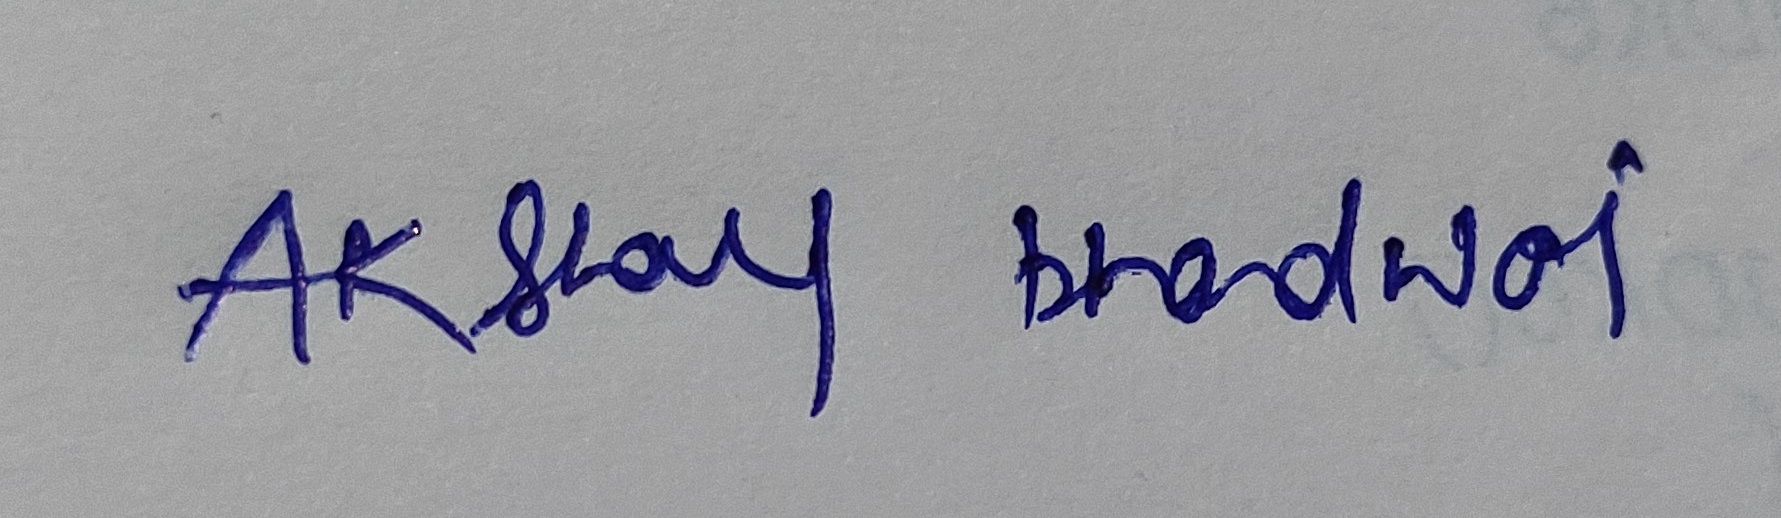 Akshay bhadwaj